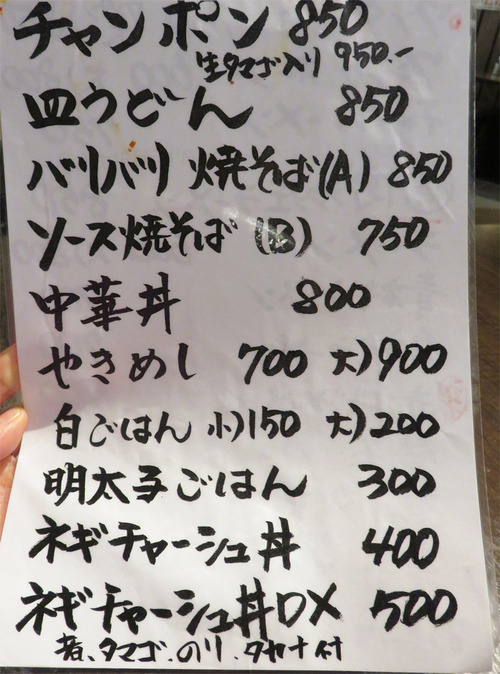 チャンポン 850
生タマゴ入り 950.-
皿うどん 850
バリバリ焼そば(A) 850
ソース焼そば (B) 750
中華丼 800
やきめし 700 大)900
白ごはん 小)150 大)200
明太子ごはん 300
ネギチャーシュ丼 400
ネギチャーシュ丼DX 500
タマゴ、のり、タカナ付